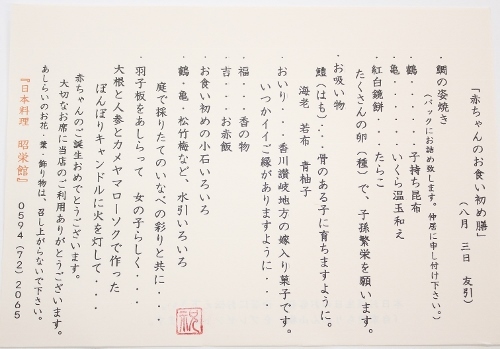 「赤ちゃんのお食い初め膳」
(八月 三日 友引)
・鯛の姿焼き
(パックにお詰め致します。仲居に申し付け下さい。)
・鶴・・・・・・子持ち昆布
・亀・・・・・・いくら温玉和え
・紅白鏡餅・・・・たらこ
たくさんの卵(種)で、子孫繁栄を願います。
・お吸い物
鱧(はも)・・・骨のある子に育ちますように。
海老 若布 青柚子
・おいり・・・香川讃岐地方の嫁入り菓子です。
いつかイイご縁がありますように・・・
・福・・・香の物
・吉・・・お赤飯
・お食い初めの小石いろいろ
・鶴・亀・松竹梅など、水引いろいろ
庭で採りたてのいなべの彩りと共に・・・
・羽子板をあしらって 女の子らしく・・・
大根と人参とカメヤマローソクで作った
ぼんぼりキャンドルに火を灯して・・・
赤ちゃんのご誕生おめでとうございます。
大切なお席に当店のご利用ありがとうございます。
あしらいのお花・葉・飾り物は、召し上がらないで下さい。
『日本料理 昭栄館』 0594(72)2065
祝